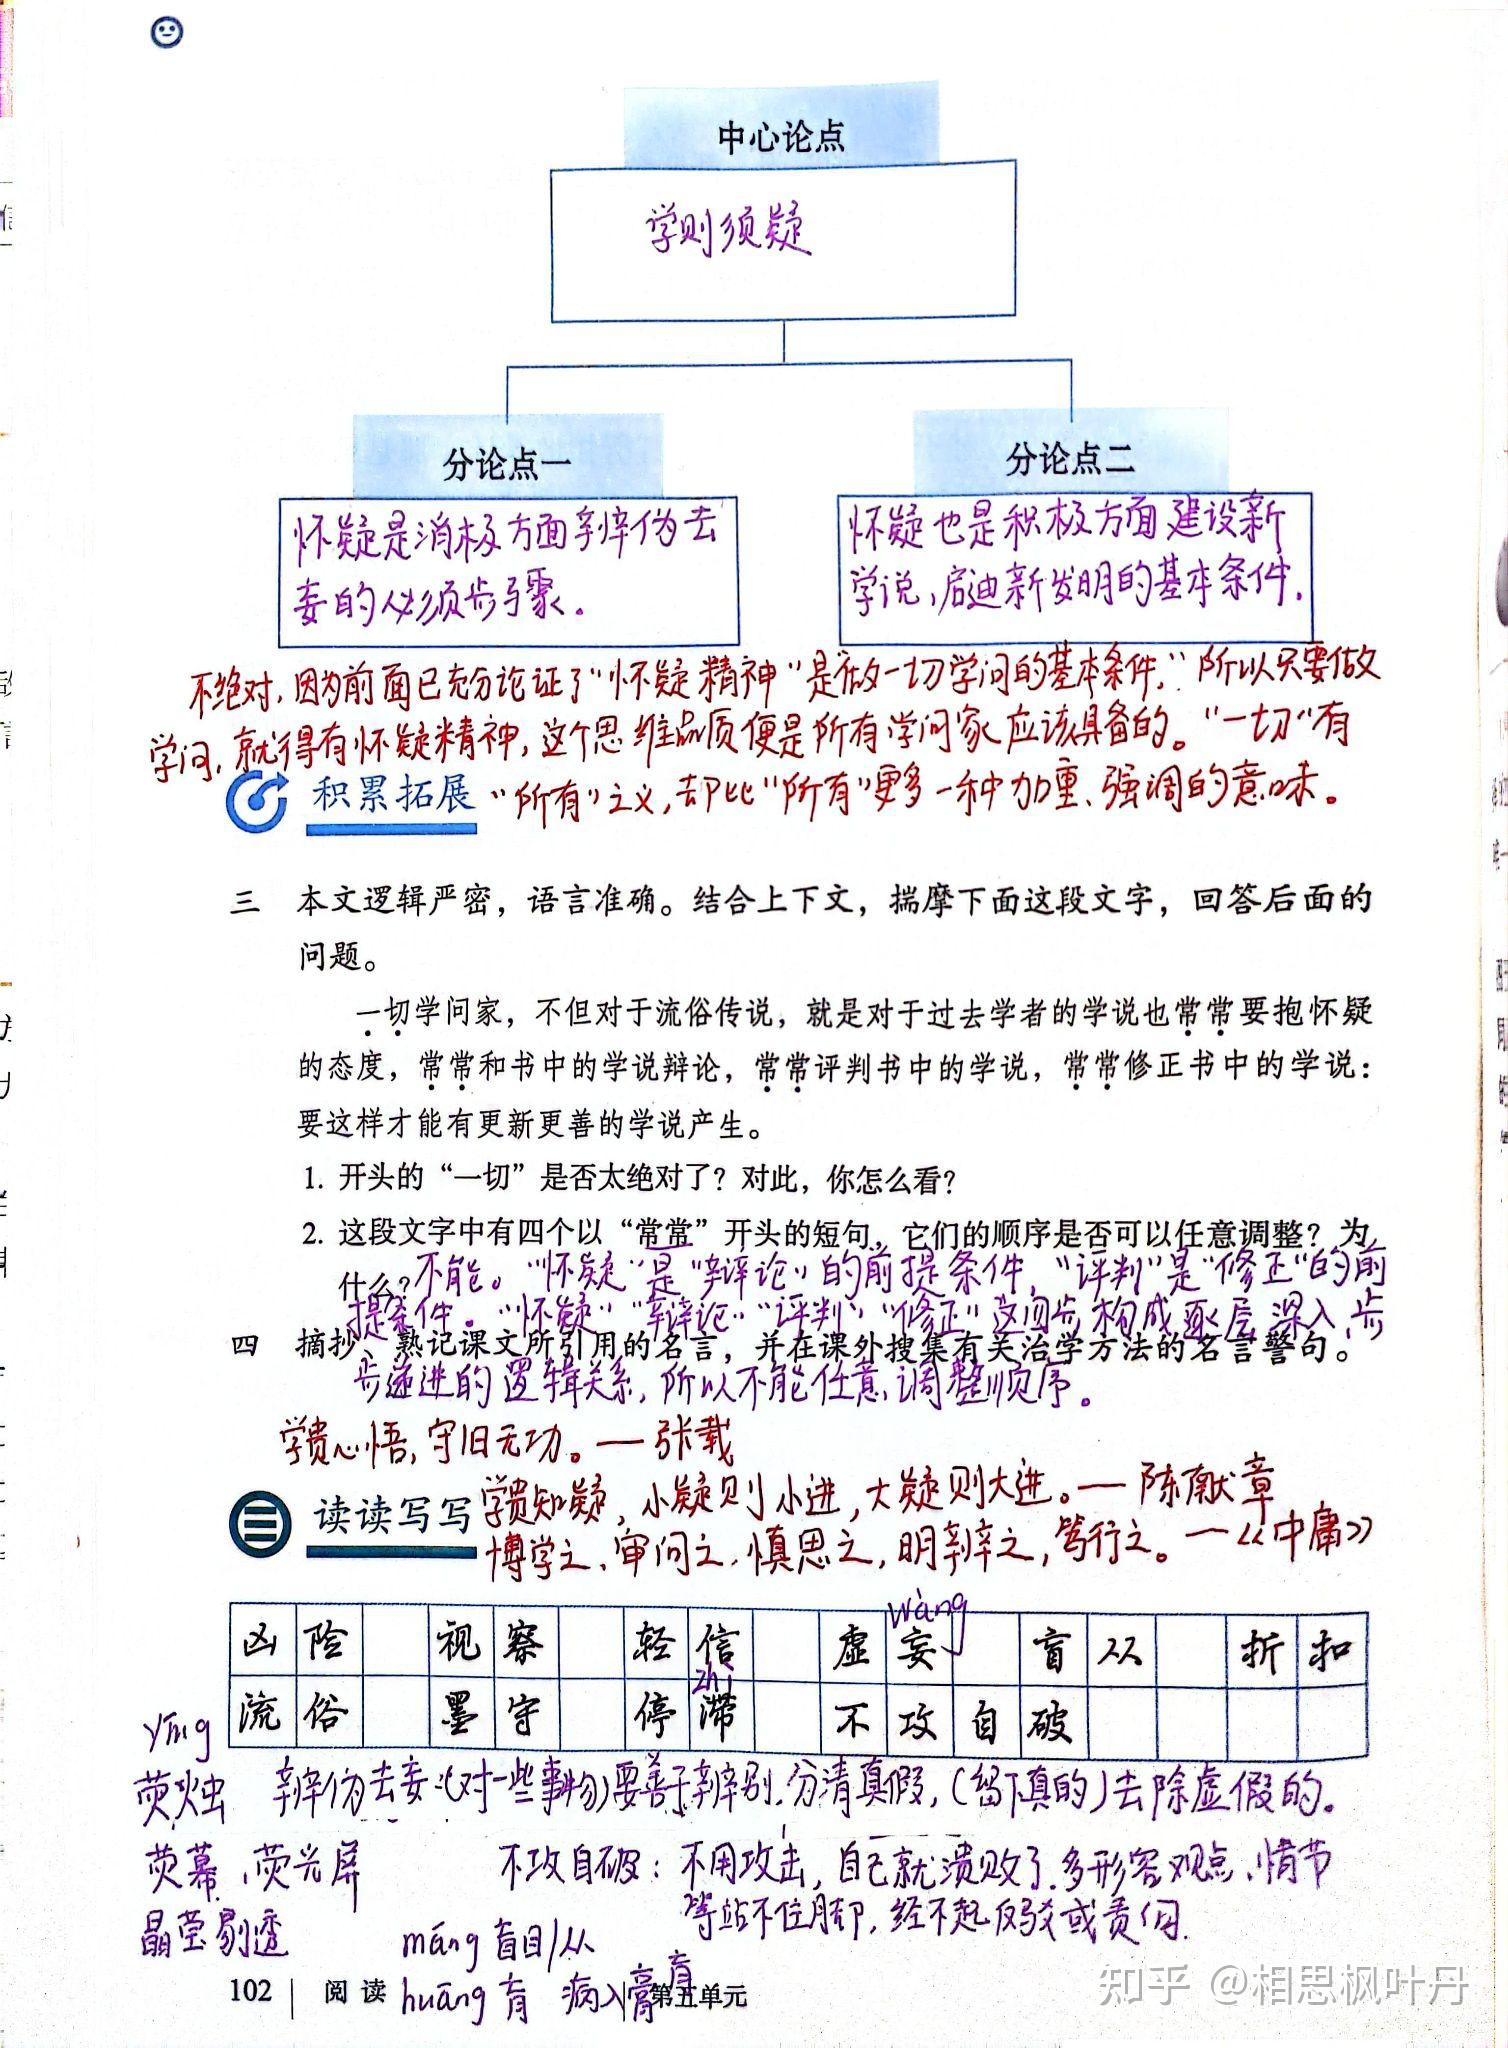 中心论点
学则须疑
分论点一
分论点二
怀疑是消极方面辨伪去
妄的必须步骤。
怀疑也是积极方面建设新
学说、启迪新发明的基本条件。
不绝对,因为前面已充分论证了“怀疑精神”是做一切学问的基本条件,”所以只要做
学问,就得有怀疑精神,这个思维品质便是所有学问家应该具备的。“一切”有
积累拓展
“所有”之义,却比“所有”更多一种加重、强调的意味。
三 本文逻辑严密，语言准确。结合上下文，揣摩下面这段文字，回答后面的
问题。
一切学问家，不但对于流俗传说，就是对于过去学者的学说也常常要抱怀疑
的态度，常常和书中的学说辩论，常常评判书中的学说，常常修正书中的学说：
要这样才能有更新更善的学说产生。
1. 开头的“一切”是否太绝对了？对此，你怎么看？
2. 这段文字中有四个以“常常”开头的短句，它们的顺序是否可以任意调整？为
什么？
不能。“怀疑”是“辩论”的前提条件,“评判”是“修正”的前
提条件。“怀疑”“辩论”“评判”“修正”这四步构成逐层深入、步
四 摘抄、熟记课文所引用的名言，并在课外搜集有关治学方法的名言警句。
步递进的逻辑关系,所以不能任意调整顺序。
学贵心悟,守旧无功。——张载
读读写写
学贵知疑,小疑则小进,大疑则大进。——陈献章
博学之、审问之、慎思之,明辨之,笃行之。——《中庸》
wàng
凶险 视察 轻信 虚妄 盲从 折扣
zhì
流俗 墨守 停滞 不攻自破
yíng
荧烛
辨伪去妄:(对一些事物)要善于辨别.分清真假,(留下真的)去除虚假的.
荧幕、荧光屏
不攻自破:不用攻击,自己就溃败了.多形容观点、情节
等站不住脚,经不起反驳或责问.
晶莹剔透
máng 盲目/从
huāng 肓 病入膏肓
102 阅读 第五单元
知乎 @相思枫叶丹